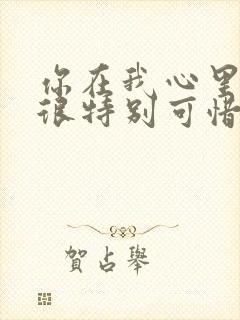 你在我心里
很特别可惜
賀占舉